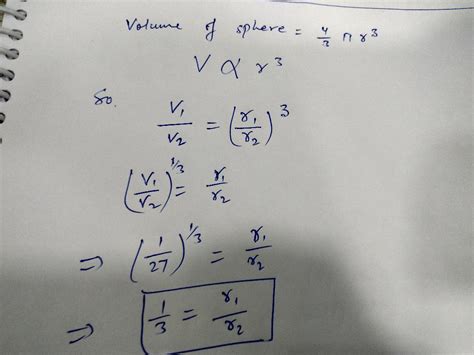 Volume of sphere = 4/3 π r³
V ∝ r³
So,
V₁/V₂ = (r₁/r₂)³
(V₁/V₂)^1/3 = r₁/r₂
⇒ (1/27)^1/3 = r₁/r₂
⇒ 1/3 = r₁/r₂